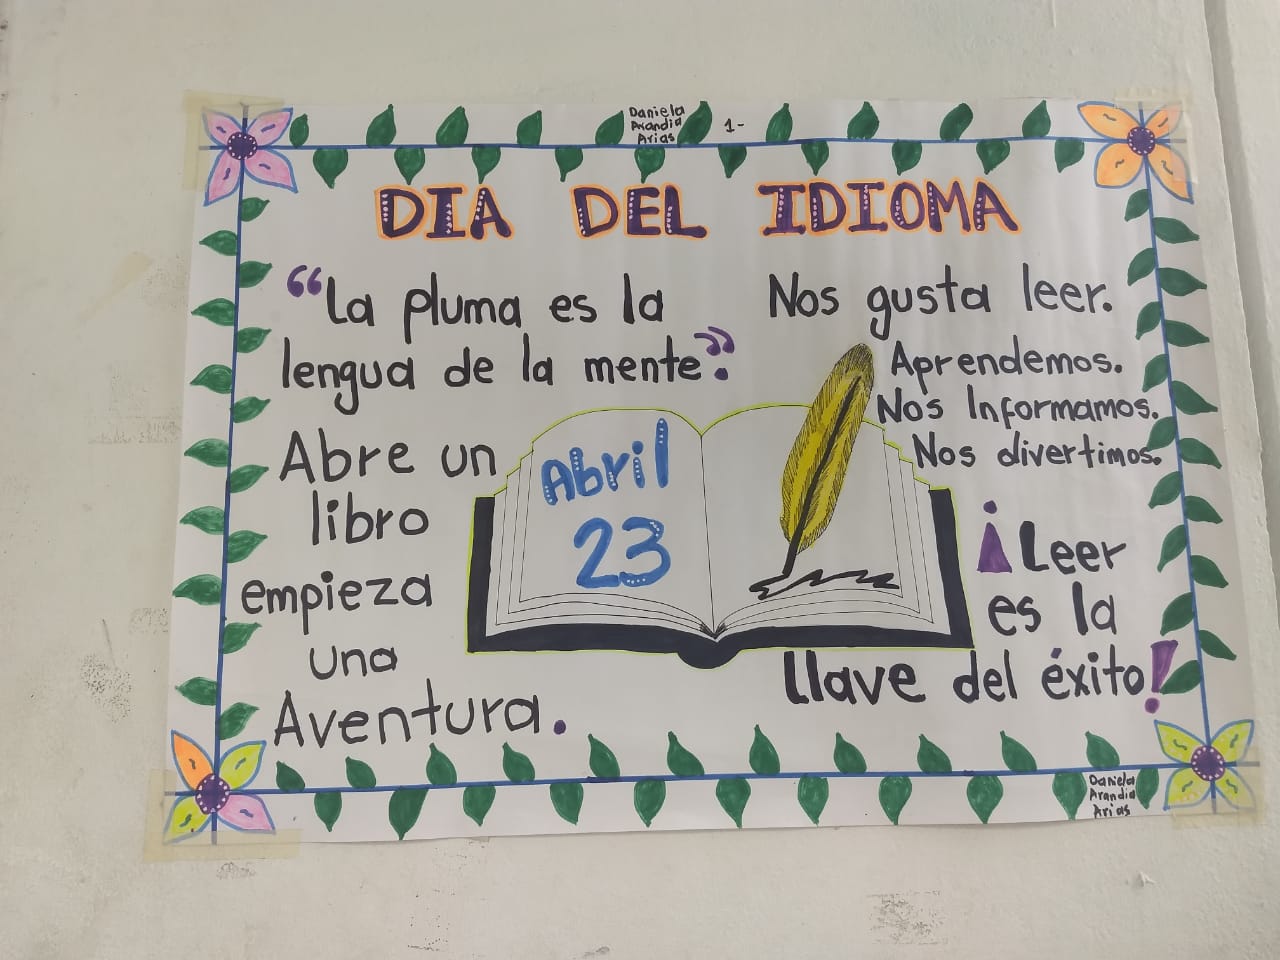 Daniela
Arandia
Arias
1-
DIA DEL IDIOMA
“La pluma es la
lengua de la mente”.
Abre un
libro
empieza
una
Aventura.
Abril
23
Nos gusta leer.
Aprendemos.
Nos Informamos.
Nos divertimos.
¡Leer
es la
llave del éxito!
Daniela
Arandia
Arias